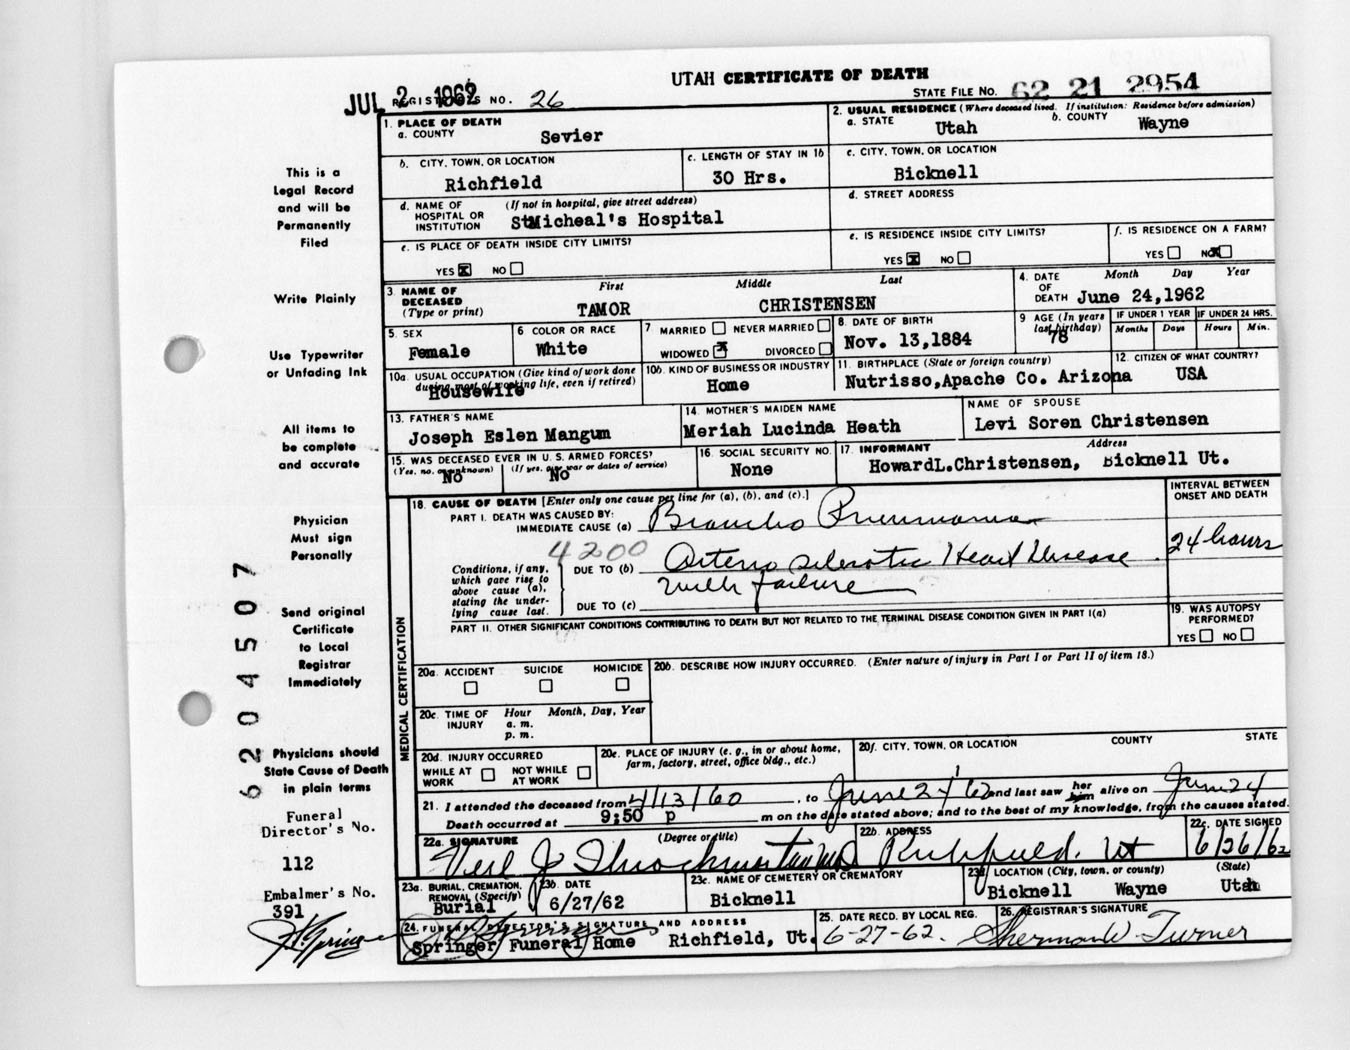 UTAH CERTIFICATE OF DEATH
JUL 2 1962 REGISTRAR'S NO. 26 STATE FILE NO. 62 21 2954
1. PLACE OF DEATH
a. COUNTY Sevier
2. USUAL RESIDENCE (Where deceased lived. If institution: Residence before admission)
a. STATE Utah b. COUNTY Wayne
b. CITY, TOWN, OR LOCATION Richfield
c. LENGTH OF STAY IN 1b 30 Hrs.
c. CITY, TOWN, OR LOCATION Bicknell
d. NAME OF HOSPITAL OR INSTITUTION (If not in hospital, give street address) St Micheal's Hospital
d. STREET ADDRESS
e. IS PLACE OF DEATH INSIDE CITY LIMITS?
YES X NO
e. IS RESIDENCE INSIDE CITY LIMITS?
YES X NO
f. IS RESIDENCE ON A FARM?
YES NO X
3 NAME OF DECEASED (Type or print) First Middle Last
TAMOR CHRISTENSEN
4. DATE OF DEATH Month Day Year
June 24,1962
5. SEX Female
6 COLOR OR RACE White
7 MARRIED NEVER MARRIED
WIDOWED X DIVORCED
8. DATE OF BIRTH Nov. 13,1884
9 AGE (In years last birthday) 78
IF UNDER 1 YEAR Months Days
IF UNDER 24 HRS. Hours Min.
10a. USUAL OCCUPATION (Give kind of work done during most of working life, even if retired) Housewife
10b. KIND OF BUSINESS OR INDUSTRY Home
11. BIRTHPLACE (State or foreign country) Nutrisso,Apache Co. Arizona
12. CITIZEN OF WHAT COUNTRY? USA
13. FATHER'S NAME Joseph Eslen Mangum
14. MOTHER'S MAIDEN NAME Meriah Lucinda Heath
NAME OF SPOUSE Levi Soren Christensen
15. WAS DECEASED EVER IN U. S. ARMED FORCES?
(Yes, no, or unknown) No (If yes, give war or dates of service) No
16. SOCIAL SECURITY NO. None
17. INFORMANT Address
HowardL.Christensen, Bicknell Ut.
18. CAUSE OF DEATH [Enter only one cause per line for (a), (b), and (c).]
PART I. DEATH WAS CAUSED BY:
IMMEDIATE CAUSE (a) Broncho Pneumonia
INTERVAL BETWEEN ONSET AND DEATH
24 hours
4200
Conditions, if any, which gave rise to above cause (a), stating the underlying cause last.
DUE TO (b) Arterio sclerotic Heart Disease
with failure
DUE TO (c)
PART II. OTHER SIGNIFICANT CONDITIONS CONTRIBUTING TO DEATH BUT NOT RELATED TO THE TERMINAL DISEASE CONDITION GIVEN IN PART I(a)
19. WAS AUTOPSY PERFORMED?
YES NO
MEDICAL CERTIFICATION
20a. ACCIDENT SUICIDE HOMICIDE
20b. DESCRIBE HOW INJURY OCCURRED. (Enter nature of injury in Part I or Part II of item 18.)
20c. TIME OF INJURY Hour Month, Day, Year
a. m.
p. m.
20d. INJURY OCCURRED
WHILE AT WORK NOT WHILE AT WORK
20e. PLACE OF INJURY (e. g., in or about home, farm, factory, street, office bldg., etc.)
20f. CITY, TOWN, OR LOCATION COUNTY STATE
21. I attended the deceased from 4/13/60, to June 24 '62 and last saw her him alive on June 24
Death occurred at 9:50 p m on the date stated above; and to the best of my knowledge, from the causes stated.
22a. SIGNATURE (Degree or title)
Veil J Throckmorton MD
22b. ADDRESS Richfield, Ut
22c. DATE SIGNED 6/26/62
23a. BURIAL, CREMATION, REMOVAL (Specify) Burial
23b. DATE 6/27/62
23c. NAME OF CEMETERY OR CREMATORY Bicknell
23d. LOCATION (City, town, or county) (State)
Bicknell Wayne Utah
24. FUNERAL DIRECTOR'S SIGNATURE AND ADDRESS
Springer Funeral Home Richfield, Ut.
25. DATE RECD. BY LOCAL REG. 6-27-62.
26. REGISTRAR'S SIGNATURE Sherman W. Turner
This is a
Legal Record
and will be
Permanently
Filed
Write Plainly
Use Typewriter
or Unfading Ink
All items to
be complete
and accurate
Physician
Must sign
Personally
Send original
Certificate
to Local
Registrar
Immediately
Physicians should
State Cause of Death
in plain terms
Funeral
Director's No.
112
Embalmer's No.
391
6204507